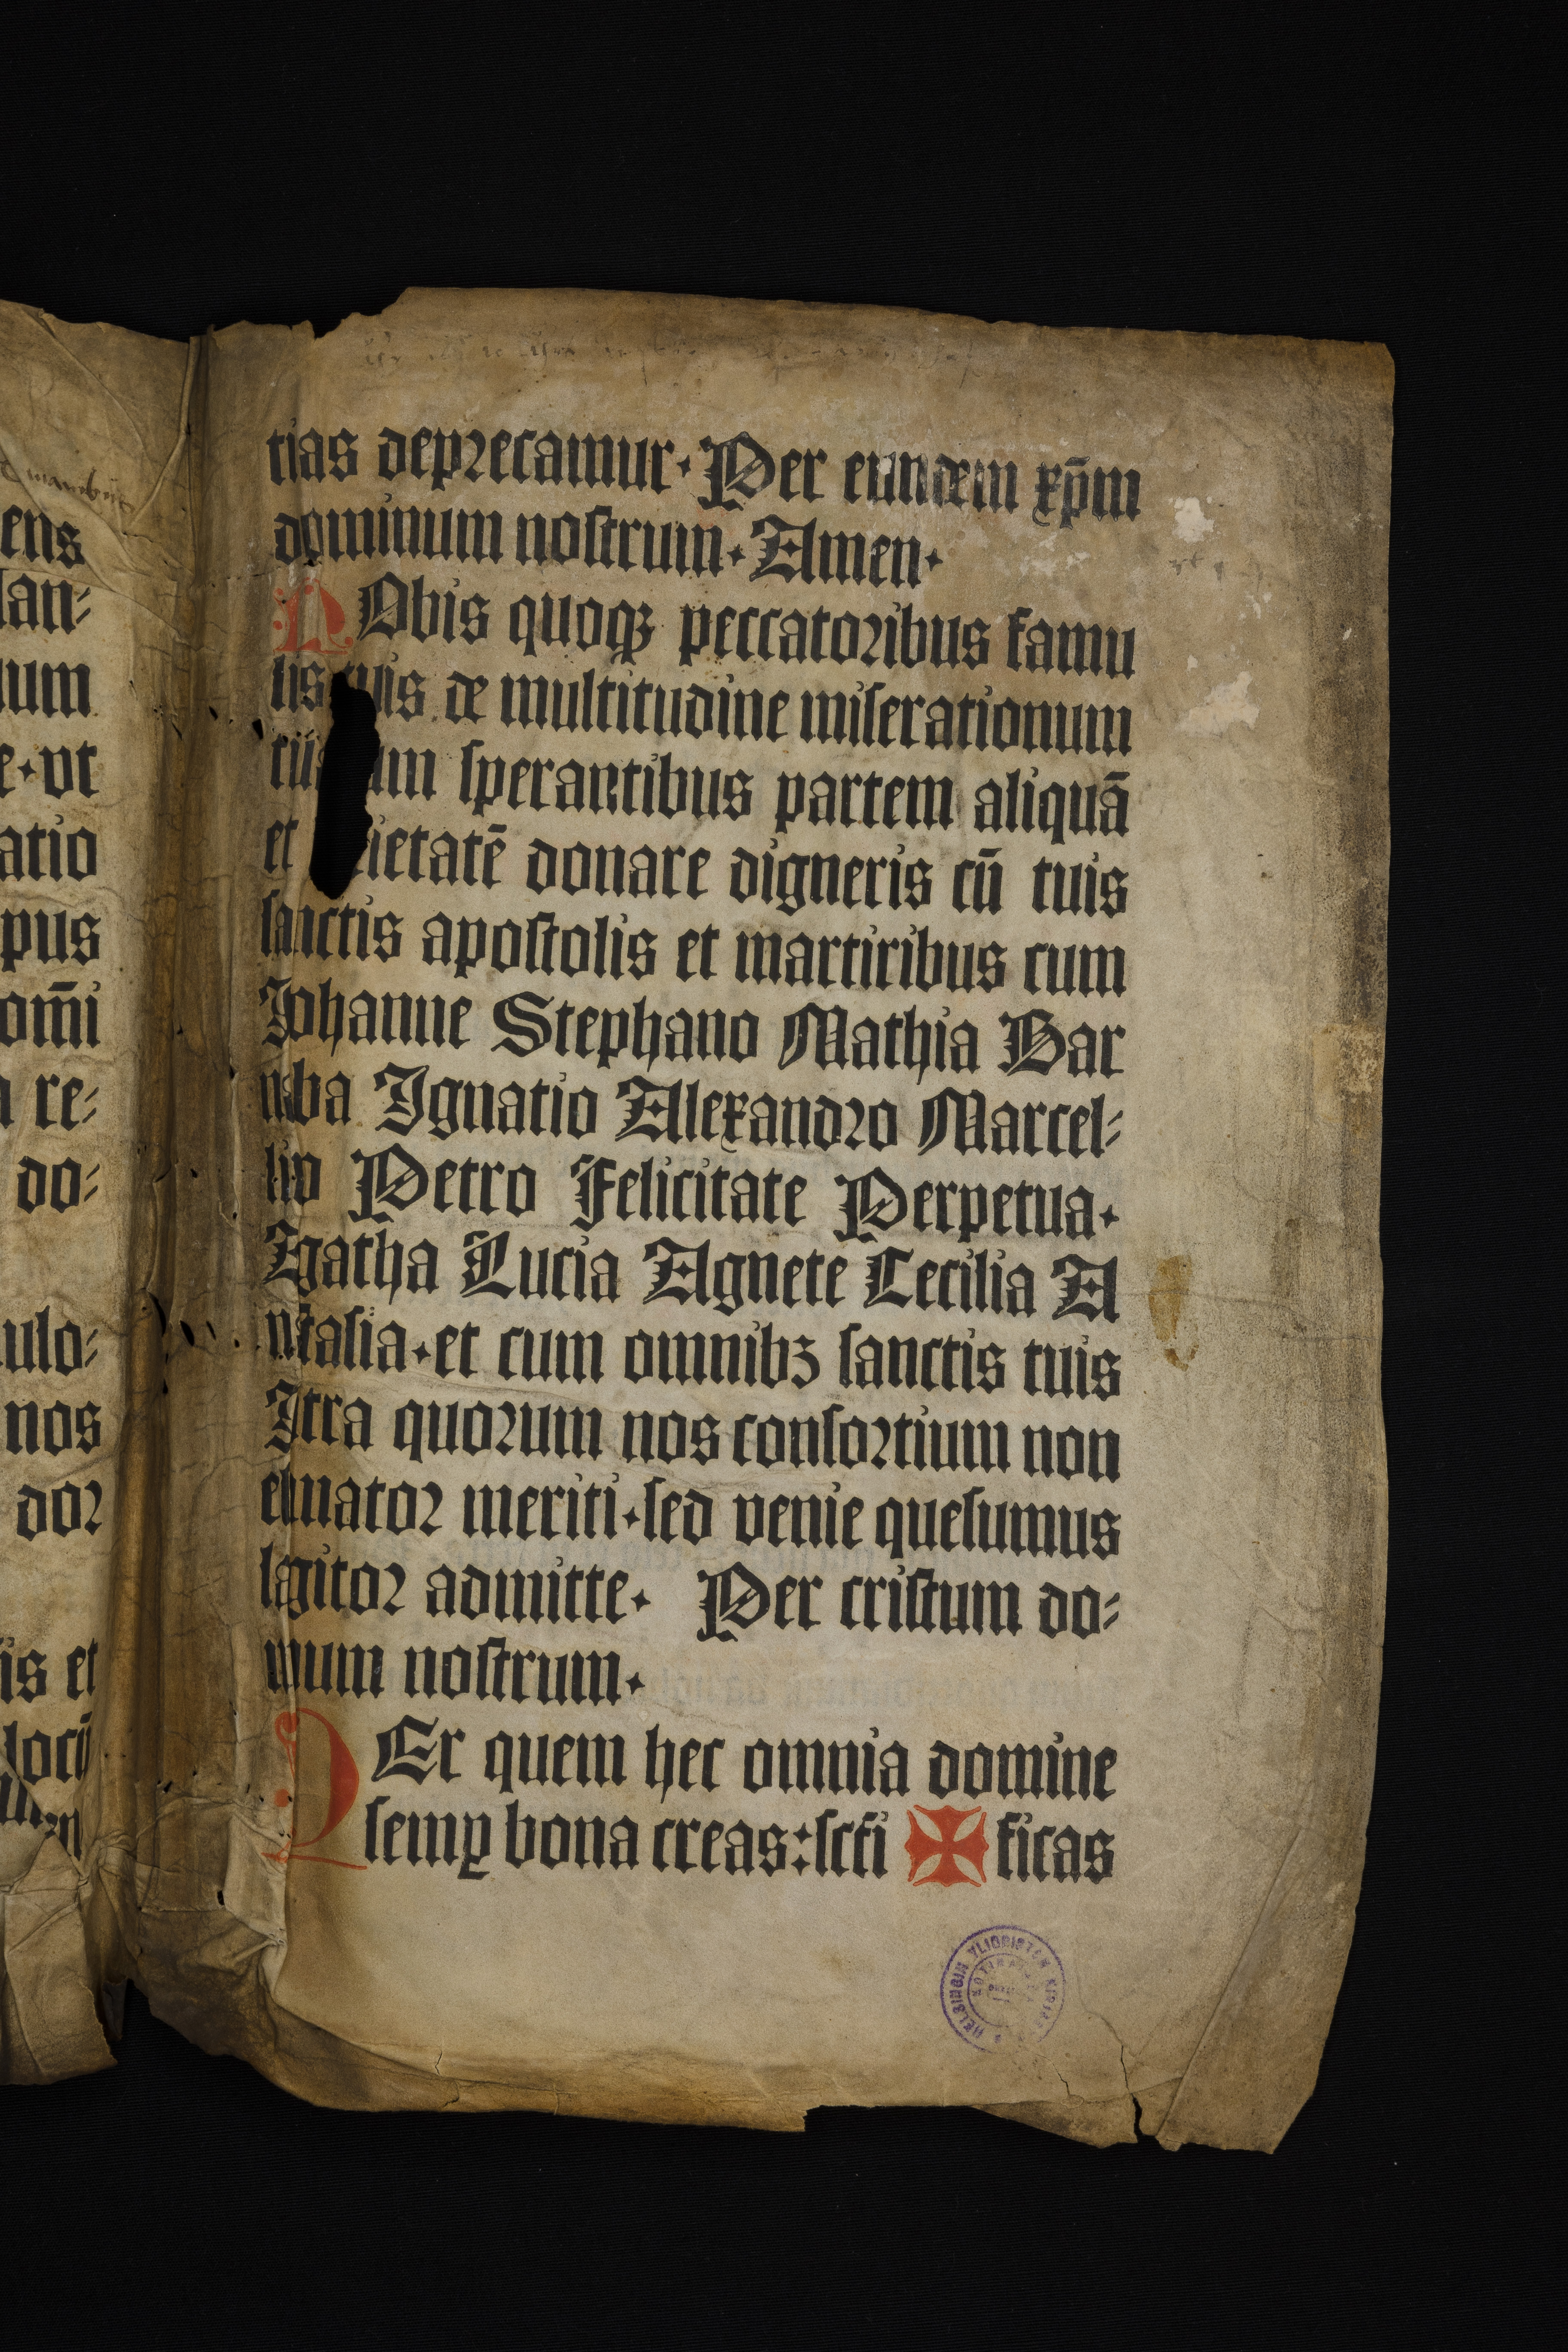 tias deprecamur. Per eundem xp̄m
dominum nostrum. Amen.
NObis quoqꝫ peccatoribus famu
lis tuis de multitudine miserationum
sperantibus partem aliquā
et donare digneris cū tuis
sanctis apostolis et martiribus cum
Johanne Stephano Mathia Bar
naba Ignatio Alexandro Marcel-
lino Petro Felicitate Perpetua.
Agatha Lucia Agnete Cecilia A
nastasia. et cum omnibꝫ sanctis tuis
Intra quorum nos consortium non
estimator meriti. sed venie quesumus
largitor admitte. Per cristum do-
minum nostrum.
PEr quem hec omnia domine
semꝑ bona creas: scti ✠ ficas
ens
lan-
um
e. vt
atio
pus
om̄i
re-
do-
ulo-
nos
dor
is et
locū
HELSINGIN YLIOPISTON KIRJASTO